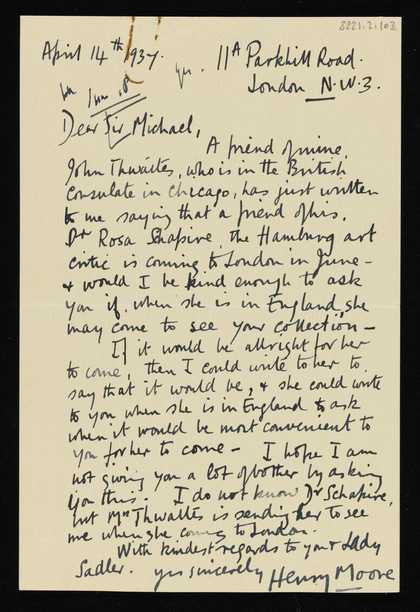 8221.2.102
April 14th 1937.
yes.
11A Parkhill Road.
London N.W.3.
Dear Sir Michael,
A friend of mine,
John Thwaites, who is in the British
Consulate in Chicago, has just written
to me saying that a friend of his,
Dr Rosa Schapire, the Hamburg art
critic is coming to London in June –
& would I be kind enough to ask
you if, when she is in England, she
may come to see your collection –
If it would be allright for her
to come, then I could write to her to
say that it would be, & she could write
to you when she is in England to ask
when it would be most convenient to
you for her to come – I hope I am
not giving you a lot of bother by asking
you this. I do not know Dr Schapire,
but Mr Thwaites is sending her to see
me when she comes to London.
With kindest regards to you & Lady
Sadler. yrs sincerely Henry Moore